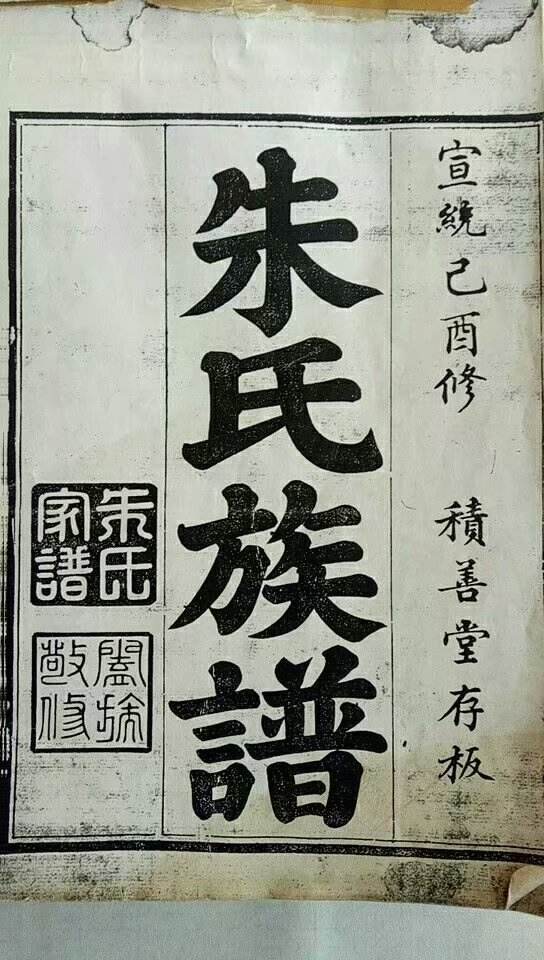 宣統己酉修　積善堂存板
朱氏族譜
朱氏
家譜
闔族
敬修